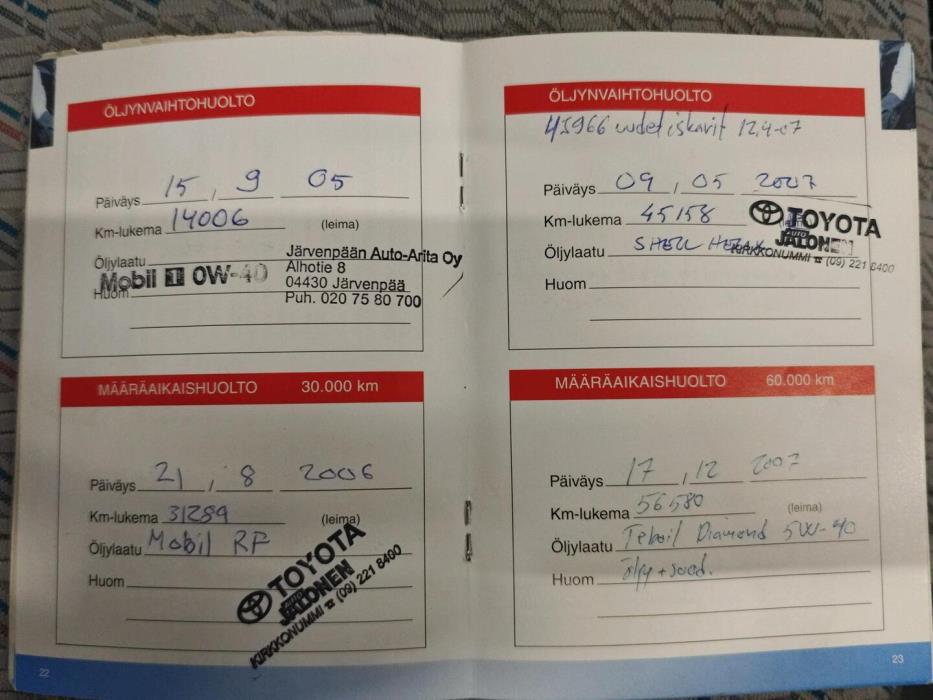 ÖLJYNVAIHTOHUOLTO
Päiväys 15, 9 05
Km-lukema 14006 (leima)
Öljylaatu
Mobil 1 0W-40
Huom
Järvenpään Auto-Arita Oy
Alhotie 8
04430 Järvenpää
Puh. 020 75 80 700
MÄÄRÄAIKAISHUOLTO 30.000 km
Päiväys 21, 8 2006
Km-lukema 31289 (leima)
Öljylaatu Mobil RF
Huom
TOYOTA
AUTO
JALONEN
KIRKKONUMMI ☎ (09) 221 8400
22
ÖLJYNVAIHTOHUOLTO
41966 uudet iskarit 12,4-07
Päiväys 09, 05 2007
Km-lukema 45158
TOYOTA
AUTO
JALONEN
KIRKKONUMMI ☎ (09) 221 8400
Öljylaatu SHELL HELIX
Huom
MÄÄRÄAIKAISHUOLTO 60.000 km
Päiväys 17, 12 2007
Km-lukema 56580 (leima)
Öljylaatu Teboil Diamond 5W-40
Huom öljy + suod.
23